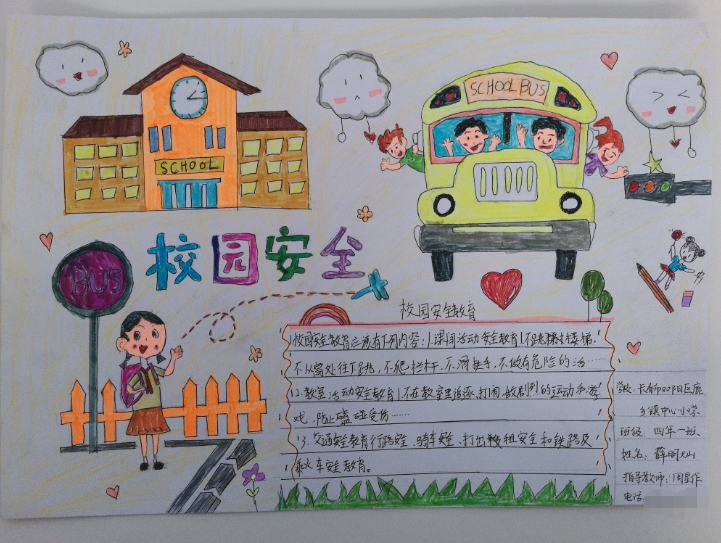 SCHOOL BUS
SCHOOL
BUS
校园安全
校园安全教育
校园安全教育应有下列内容:1.课间活动安全教育1不
不从高处往下跳,不爬栏杆,不滑扶手,不做有危险的活……
2.教室活动安全教育1不在教室里追逐,打闹,做剧烈的运动和游
戏,防止磕碰受伤……
3.交通安全教育行路安全,骑车安全,打出租车安全和铁路及
乘火车安全教育。
学校:
乡镇中心小学
班级:四年一班
姓名:薛明
指导教师:周
电话: